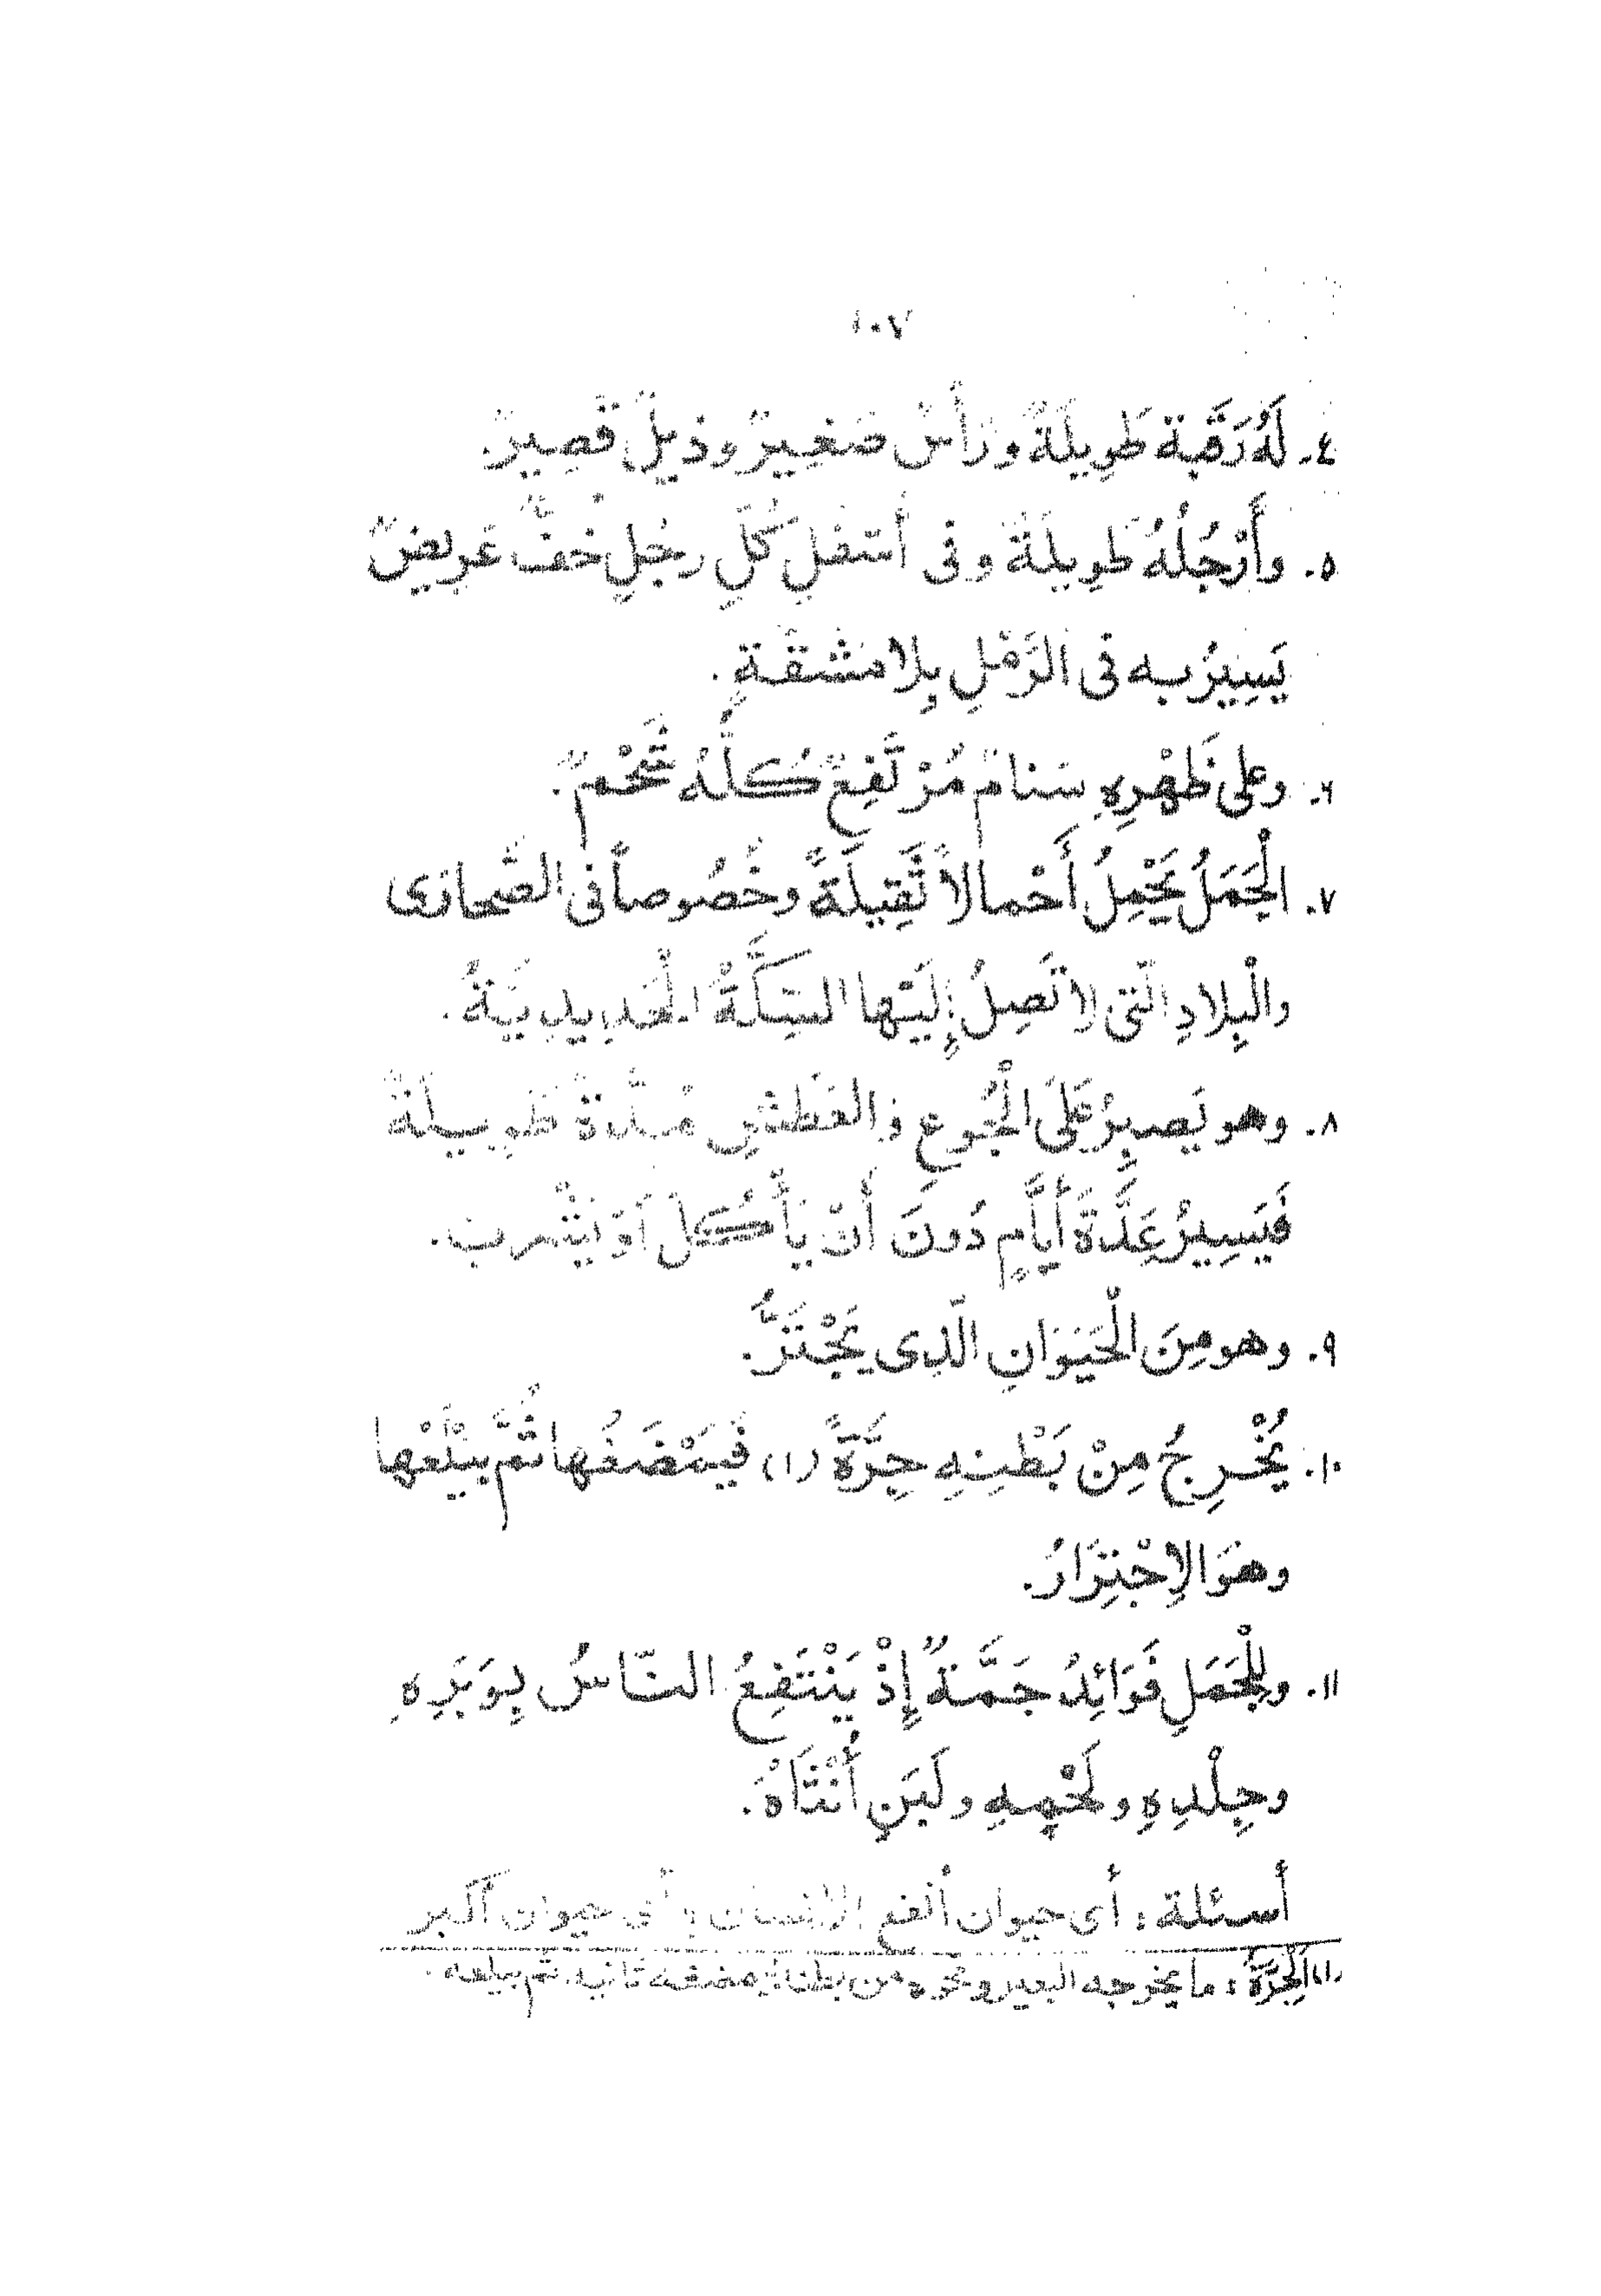 ١٠٧
٤. لَهُ رَقَبة طَوِيلَةٌ ورَأْسٌ صَغِيرٌ وذيلٌ قَصِيرٌ.
٥. وأَرْجُلُهُ طَوِيلَةٌ وفى أَسْفلِ كُلِّ رِجْلٍ خُفٌّ عَرِيضٌ
يَسِيرُ به فى الرَّمْلِ بِلا مَشقَّةٍ.
٦. وعلى ظَهْرِهِ سَنامٌ مُرْتَفِعٌ كُلُّهُ شَحْمٌ.
٧. الْجَمَلُ يَحْمِلُ أَحْمالاً ثَقِيلَةً وخُصُوصاً فى الصَّحارَى
والْبِلادِ الّتى لا تَصِلُ إِلَيْها السِّكَّةُ الْحَدِيدِيَّةُ.
٨. وهو يَصبِرُ عَلَى الْجُوعِ والعَطَشِ مُدَّةً طَوِيلَةً
فَيَسِيرُ عِدَّةَ أَيَّامٍ دُونَ أَنْ يَأْكُلَ أَوْ يَشْرب.
٩. وهو مِنَ الْحَيَوَانِ الّذِى يَجْتَرُّ.
١٠. يُخْرِجُ مِنْ بَطْنِهِ جِرَّةً (١) فَيَمْضَغُها ثُمَّ يبْلَعُها
وهُوَ الاِجْتِرَارُ.
١١. ولِلْجَمَلِ فَوَائِدُ جَمَّةٌ إِذْ يَنْتَفِعُ النّاسُ بِوَبَرِهِ
وجِلْدِهِ ولَحْمِهِ ولَبَنِ أُنْثَاهُ.
أسئلة : أى حيوان أنفع للإنسان ؛ أى حيوان أكبر
(١) الْجِرَّةُ : ما يخرجه البعير ونحوه من بطنه ليمضغه ثانيه ثم يبلعه.